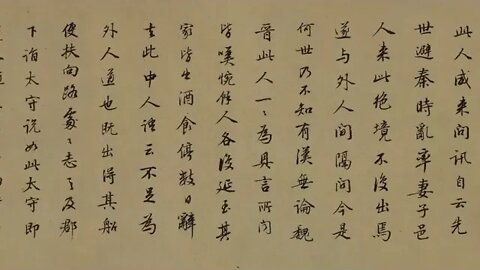 此人咸来问訊自云先
世避秦時亂率妻子邑
人来此絶境不復出焉
遂与外人间隔问今是
何世乃不知有漢無論魏
晉此人一〻為具言所闻
皆嘆惋餘人各復延至其
家皆出酒食停數日辭
去此中人語云不足為
外人道也既出得其船
便扶向路處〻志之及郡
下詣太守说如此太守即